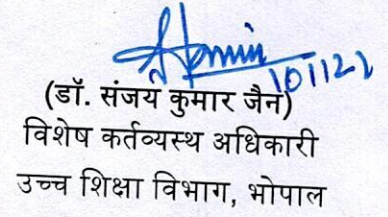 101122
(डॉ. संजय कुमार जैन)
विशेष कर्तव्यस्थ अधिकारी
उच्च शिक्षा विभाग, भोपाल